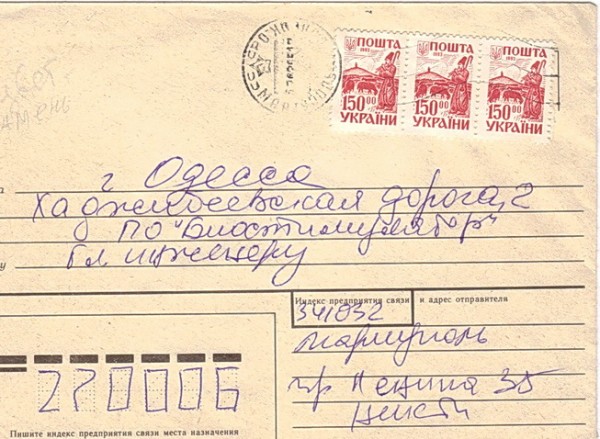 ПОШТА ПОШТА ПОШТА
1993 1993 1993
150 00 150 00 150 00
УКРАЇНИ УКРАЇНИ УКРАЇНИ
г Одесса
Хаджибеевская дорога, 2
ПО "Биостимулятор"
гл инженеру
Индекс предприятия связи и адрес отправителя
341032
Мариуполь
пр Ленина 35
270006
Пишите индекс предприятия связи места назначения